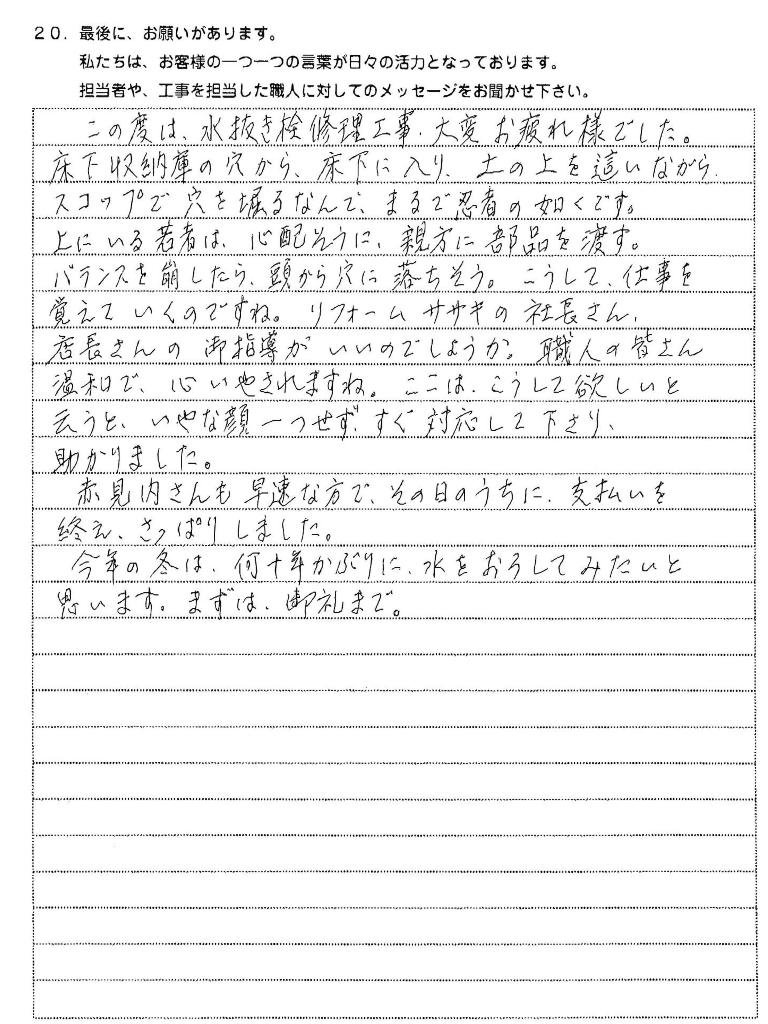 20. 最後に、お願いがあります。
私たちは、お客様の一つ一つの言葉が日々の活力となっております。
担当者や、工事を担当した職人に対してのメッセージをお聞かせ下さい。
この度は、水抜き栓修理工事、大変お疲れ様でした。
床下収納庫の穴から、床下に入り、土の上を這いながら、
スコップで穴を堀るなんて、まるで忍者の如くです。
上にいる若者は、心配そうに、親方に部品を渡す。
バランスを崩したら、頭から穴に落ちそう。こうして、仕事を
覚えていくのですね。リフォームササキの社長さん、
店長さんの御指導がいいのでしょうか。職人の皆さん
温和で、心いやされますね。ここは、こうして欲しいと
云うと、いやな顔一つせず、すぐ対応して下さり、
助かりました。
赤見内さんも早速な方で、その日のうちに、支払いを
終え、さっぱりしました。
今年の冬は、何十年かぶりに、水をおろしてみたいと
思います。まずは、御礼まで。